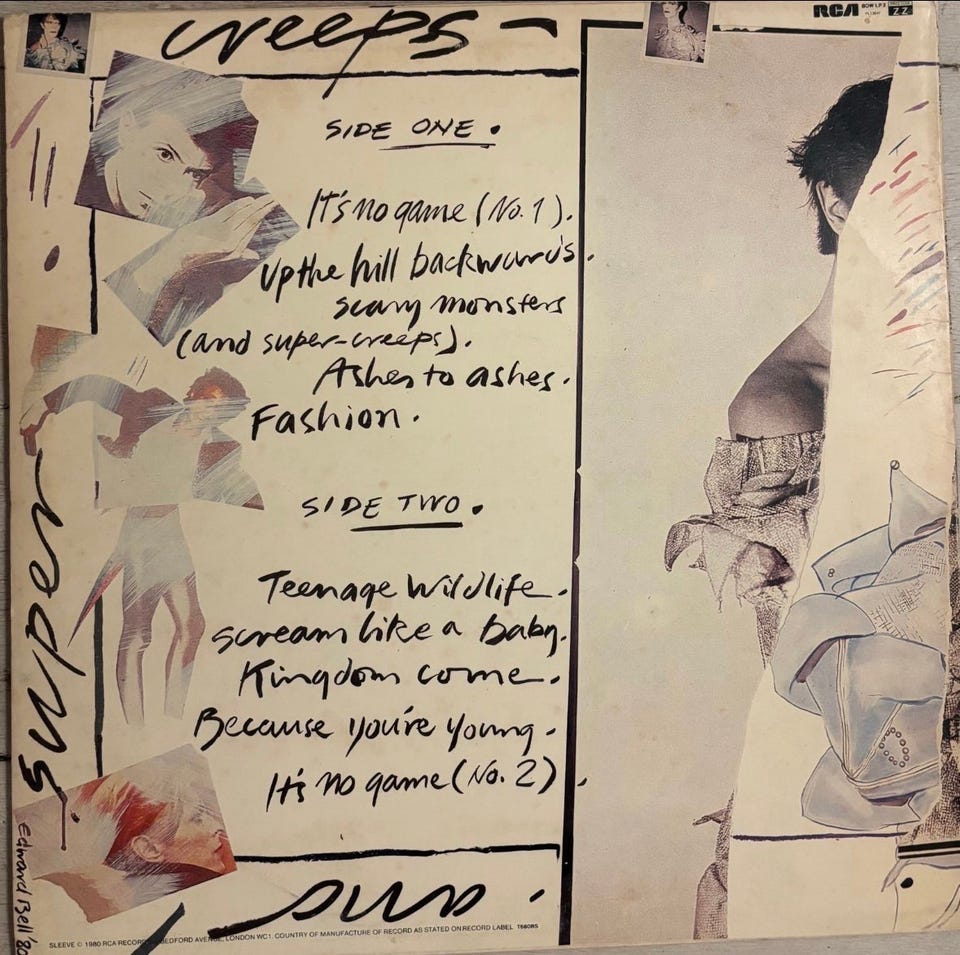 creeps -
RCA BOW LP 2
ZZ
SIDE ONE.
It's no game (No. 1).
Up the hill backwards.
scary monsters
(and super-creeps).
Ashes to ashes.
Fashion.
SIDE TWO.
Teenage Wildlife.
scream like a baby.
Kingdom come.
Because you're young.
It's no game (No. 2).
super
and.
Edward Bell '80
SLEEVE © 1980 RCA RECORDS BEDFORD AVENUE, LONDON WC1. COUNTRY OF MANUFACTURE OF RECORD AS STATED ON RECORD LABEL